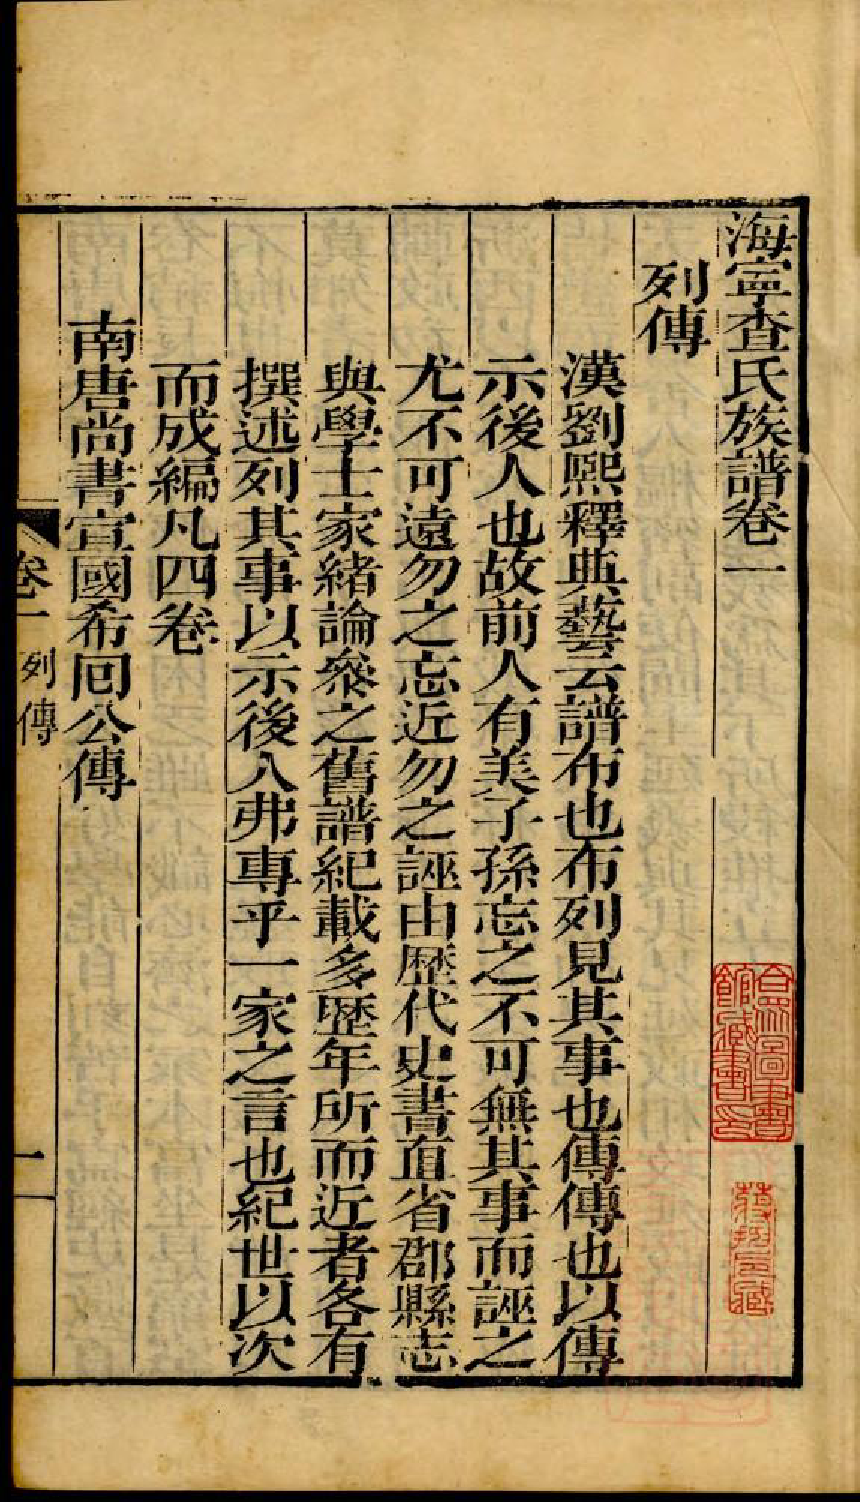 海寧查氏族譜卷一
列傳
漢劉熙釋典藝云譜布也布列見其事也傳傳也以傳
示後人也故前人有美子孫忘之不可無其事而誣之
尤不可遠勿之忘近勿之誣由歷代史書直省郡縣志
與學士家緒論叅之舊譜紀載多歷年所而近者各有
撰述列其事以示後人弗專乎一家之言也紀世以次
而成編凡四卷
南唐尚書宣國希囘公傳
卷一 列傳
一
圖書
館藏書印
藏